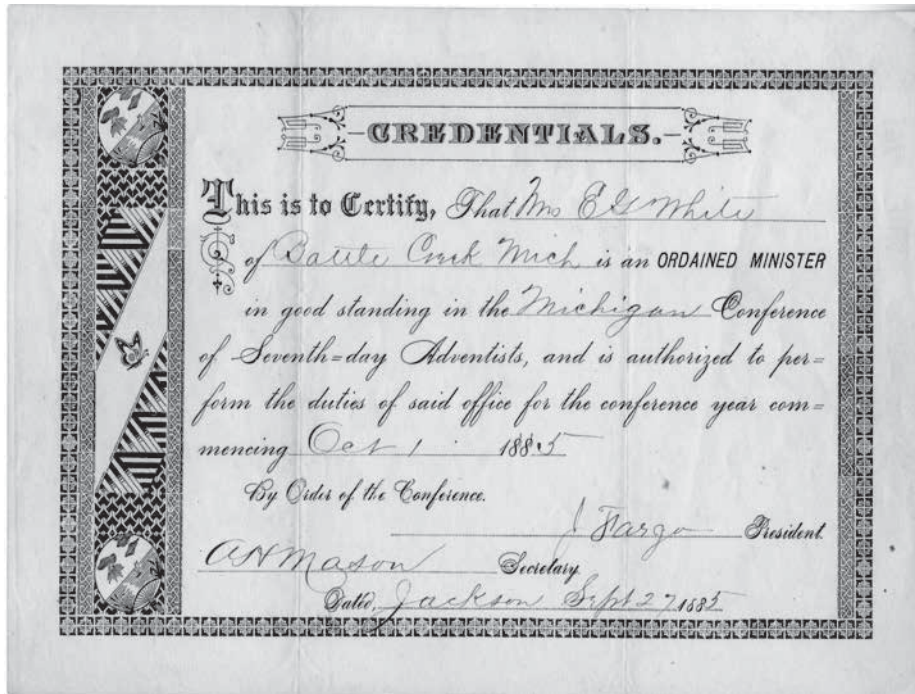 CREDENTIALS.
This is to Certify, That Mrs E G White
of Battle Creek Mich is an ORDAINED MINISTER
in good standing in the Michigan Conference
of Seventh=day Adventists, and is authorized to per=
form the duties of said office for the conference year com=
mencing Oct 1 1885
By Order of the Conference.
J Fargo President.
A H Mason Secretary
Dated, Jackson Sept 27 1885